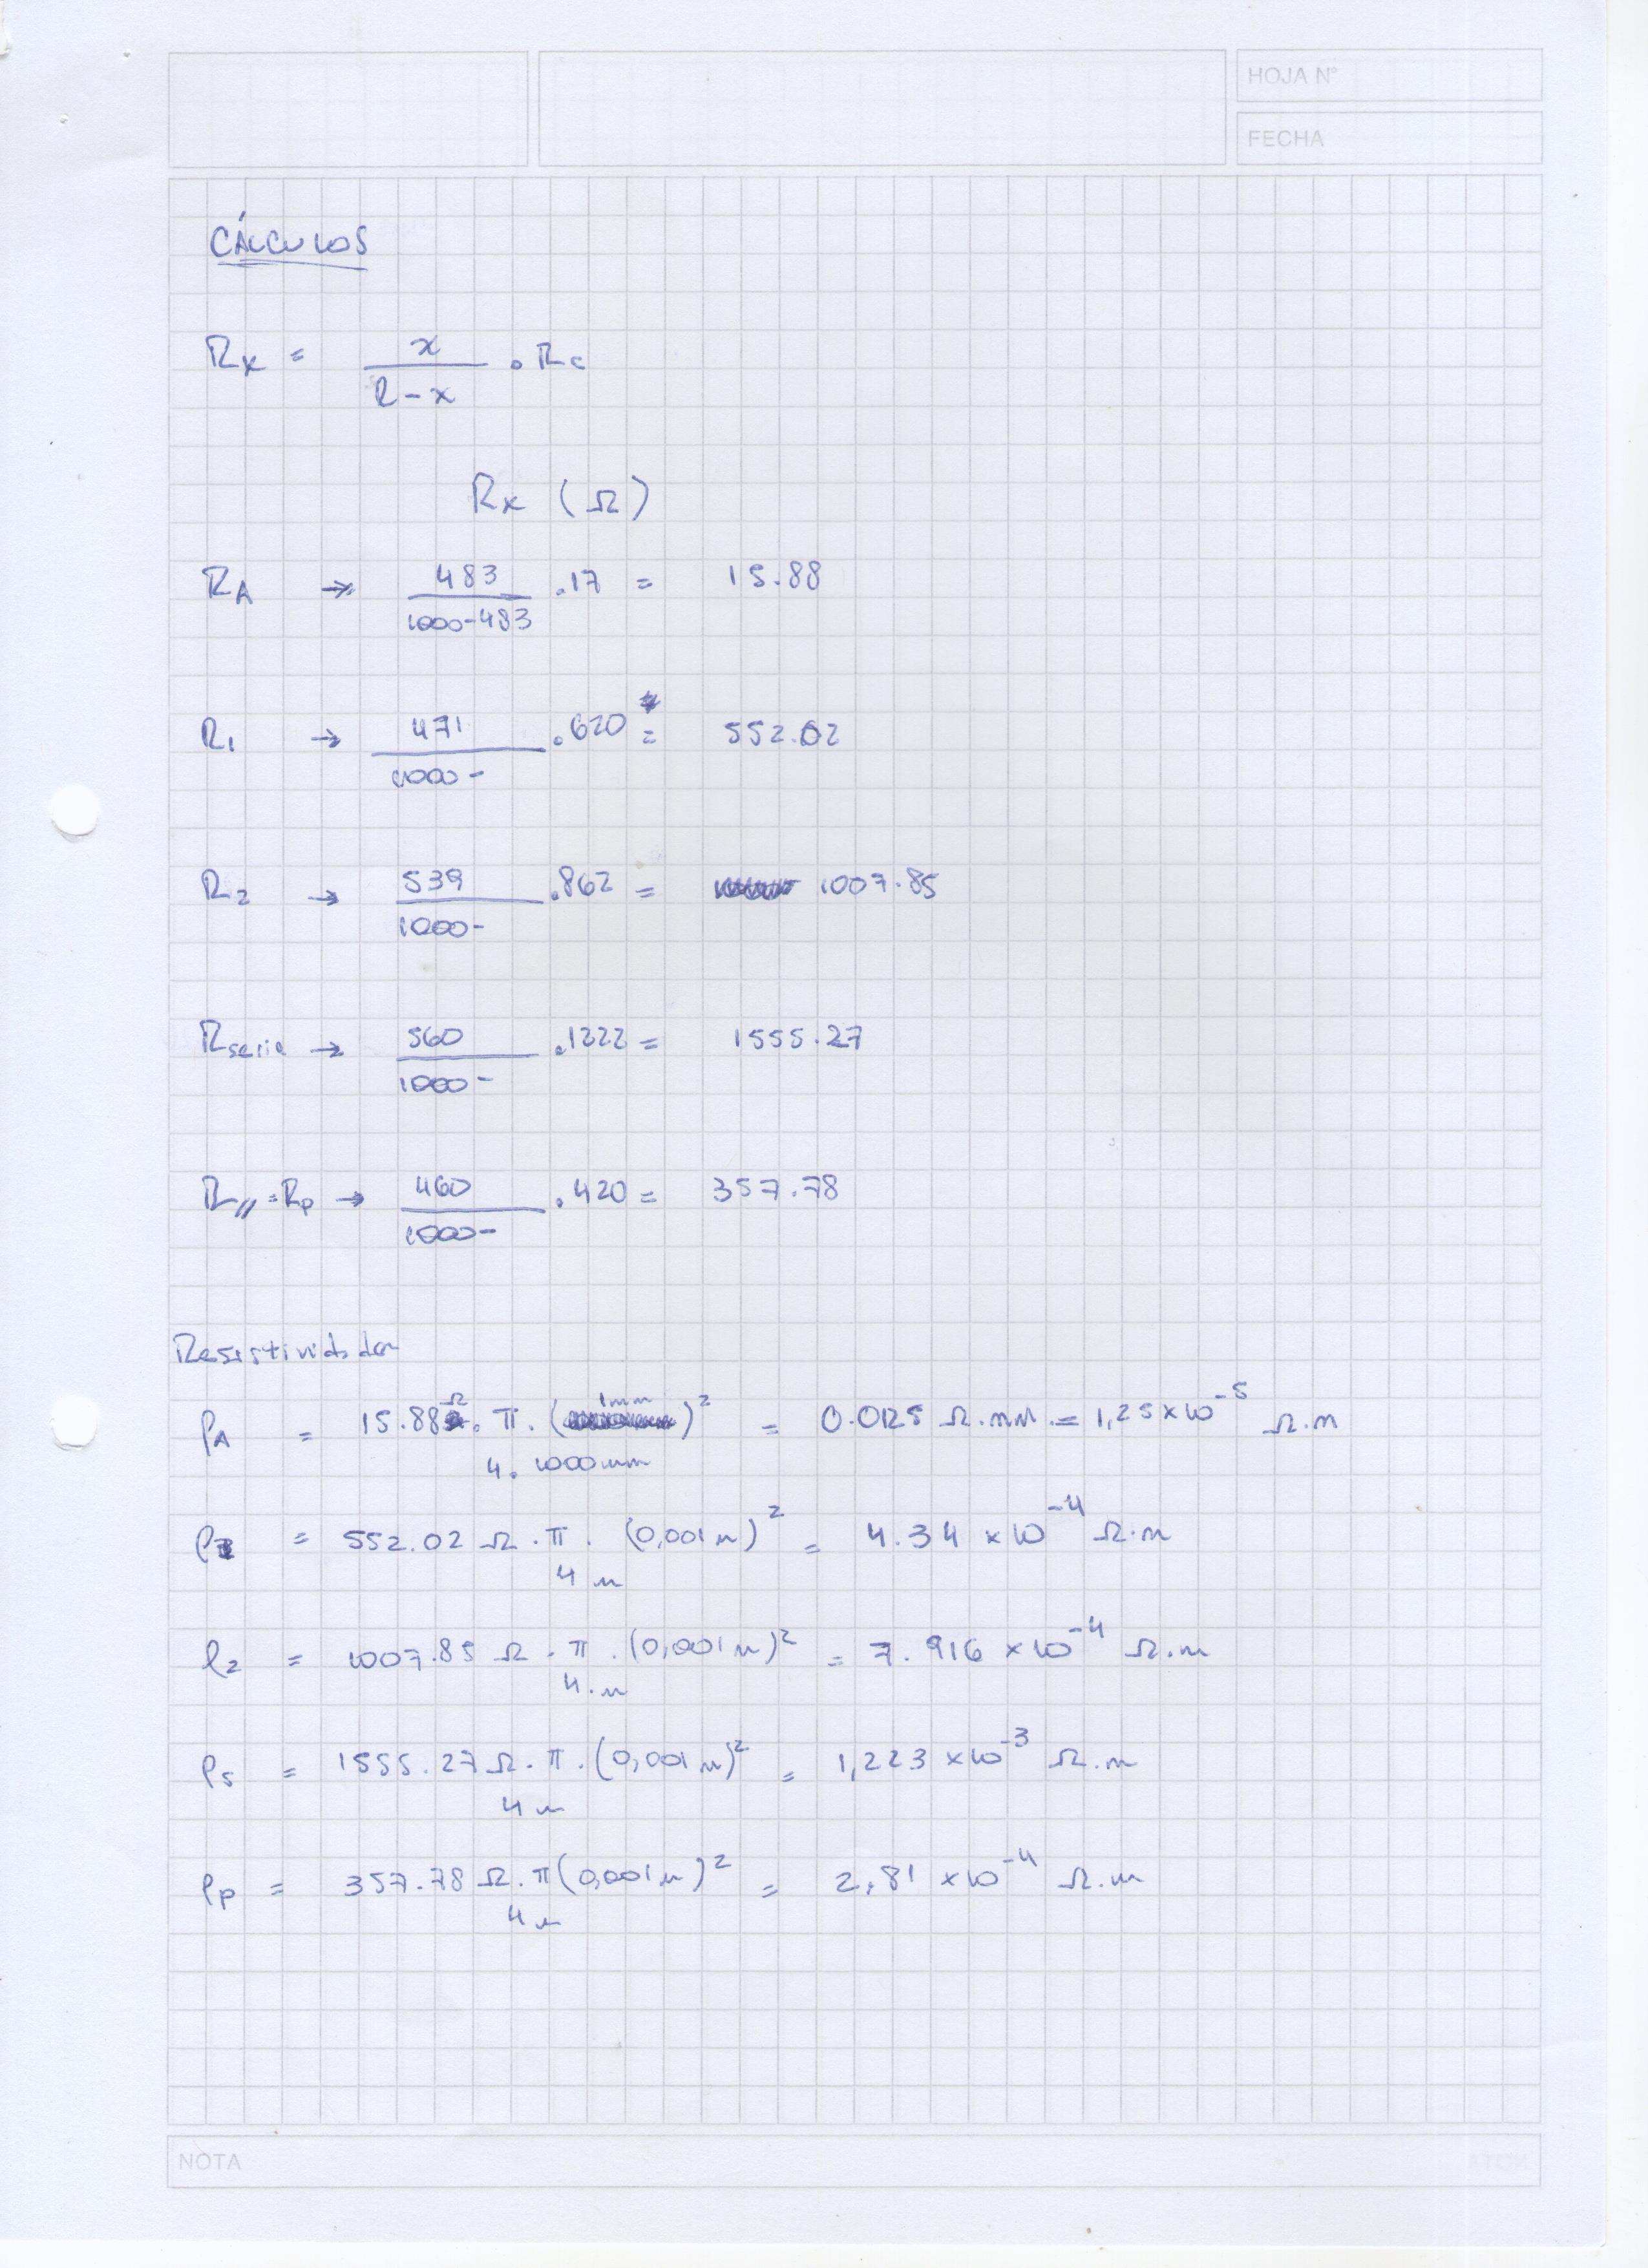 HOJA N°
FECHA
CÁLCULOS
Rx = x / R-x . Rc
Rx (Ω)
RA → 483 / 1000-483 .17 = 15.88
R1 → 471 / 1000- .620 = 552.02
R2 → 539 / 1000- .862 = 1007.85
Rserie → 560 / 1000- .1222 = 1555.27
R// = Rp → 460 / 1000- .420 = 357.78
ρA = 15.88 Ω . π . (1mm)² / 4. 1000mm = 0.0125 Ω.mm. = 1,25x10⁻⁵ Ω.m
= 552.02 Ω . π . (0,001m)² / 4 m = 4.34 x10⁻⁴ Ω.m
ρ2 = 1007.85 Ω . π . (0,001m)² / 4.m = 7.916 x10⁻⁴ Ω.m
ρs = 1555.27 Ω . π . (0,001m)² / 4 m = 1,223 x10⁻³ Ω.m
ρp = 357.78 Ω . π(0,001m)² / 4 m = 2,81 x10⁻⁴ Ω.m
NOTA